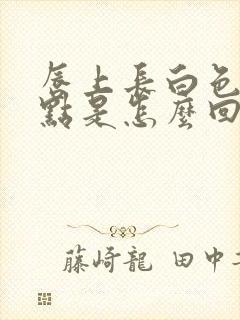 唇上長白色
點是怎麼回
藤崎龍 田中